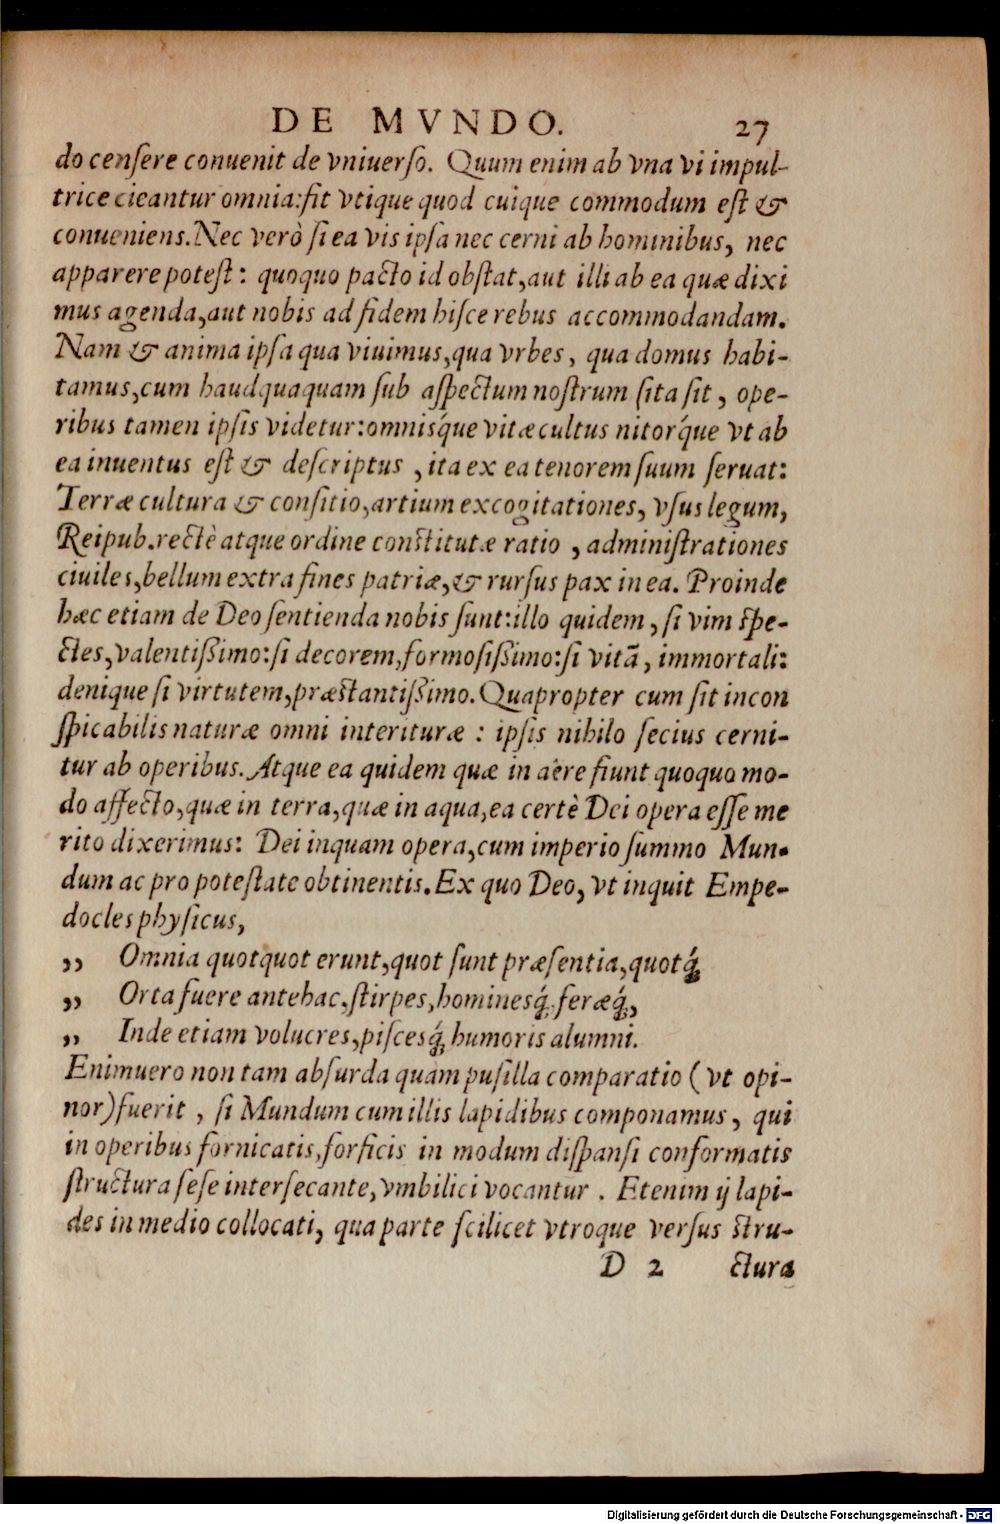 DE MVNDO. 27
do censere conuenit de vniuerso. Quum enim ab vna vi impul-
trice cieantur omnia: fit vtique quod cuique commodum est &
conueniens. Nec verò si ea vis ipsa nec cerni ab hominibus, nec
apparere potest: quoquo pacto id obstat, aut illi ab ea quæ dixi
mus agenda, aut nobis ad fidem hisce rebus accommodandam.
Nam & anima ipsa qua viuimus, qua vrbes, qua domus habi-
tamus, cum haudquaquam sub aspectum nostrum sita sit, ope-
ribus tamen ipsis videtur: omnisq́ue vitæ cultus nitorq́ue vt ab
ea inuentus est & descriptus, ita ex ea tenorem suum seruat:
Terræ cultura & consitio, artium excogitationes, vsus legum,
Reipub. rectè atque ordine constitutæ ratio, administrationes
ciuiles, bellum extra fines patriæ, & rursus pax in ea. Proinde
hæc etiam de Deo sentienda nobis sunt: illo quidem, si vim spe-
ctes, valentißimo: si decorem, formosißimo: si vitã, immortali:
denique si virtutem, præstantißimo. Quapropter cum sit incon
spicabilis naturæ omni interituræ: ipsis nihilo secius cerni-
tur ab operibus. Atque ea quidem quæ in aëre fiunt quoquo mo-
do affecto, quæ in terra, quæ in aqua, ea certè Dei opera esse me
rito dixerimus: Dei inquam opera, cum imperio summo Mun-
dum ac pro potestate obtinentis. Ex quo Deo, vt inquit Empe-
docles physicus,
,, Omnia quotquot erunt, quot sunt præsentia, quotq́;
,, Orta fuere antehac, stirpes, hominesq́; feræq́;,
,, Inde etiam volucres, piscesq́; humoris alumni.
Enimuero non tam absurda quàm pusilla comparatio (vt opi-
nor) fuerit, si Mundum cum illis lapidibus componamus, qui
in operibus fornicatis, forficis in modum dispansi conformatis
structura sese intersecante, vmbilici vocantur. Etenim ij lapi-
des in medio collocati, qua parte scilicet vtroque versus stru-
D 2 ctura
Digitalisierung gefördert durch die Deutsche Forschungsgemeinschaft - DFG